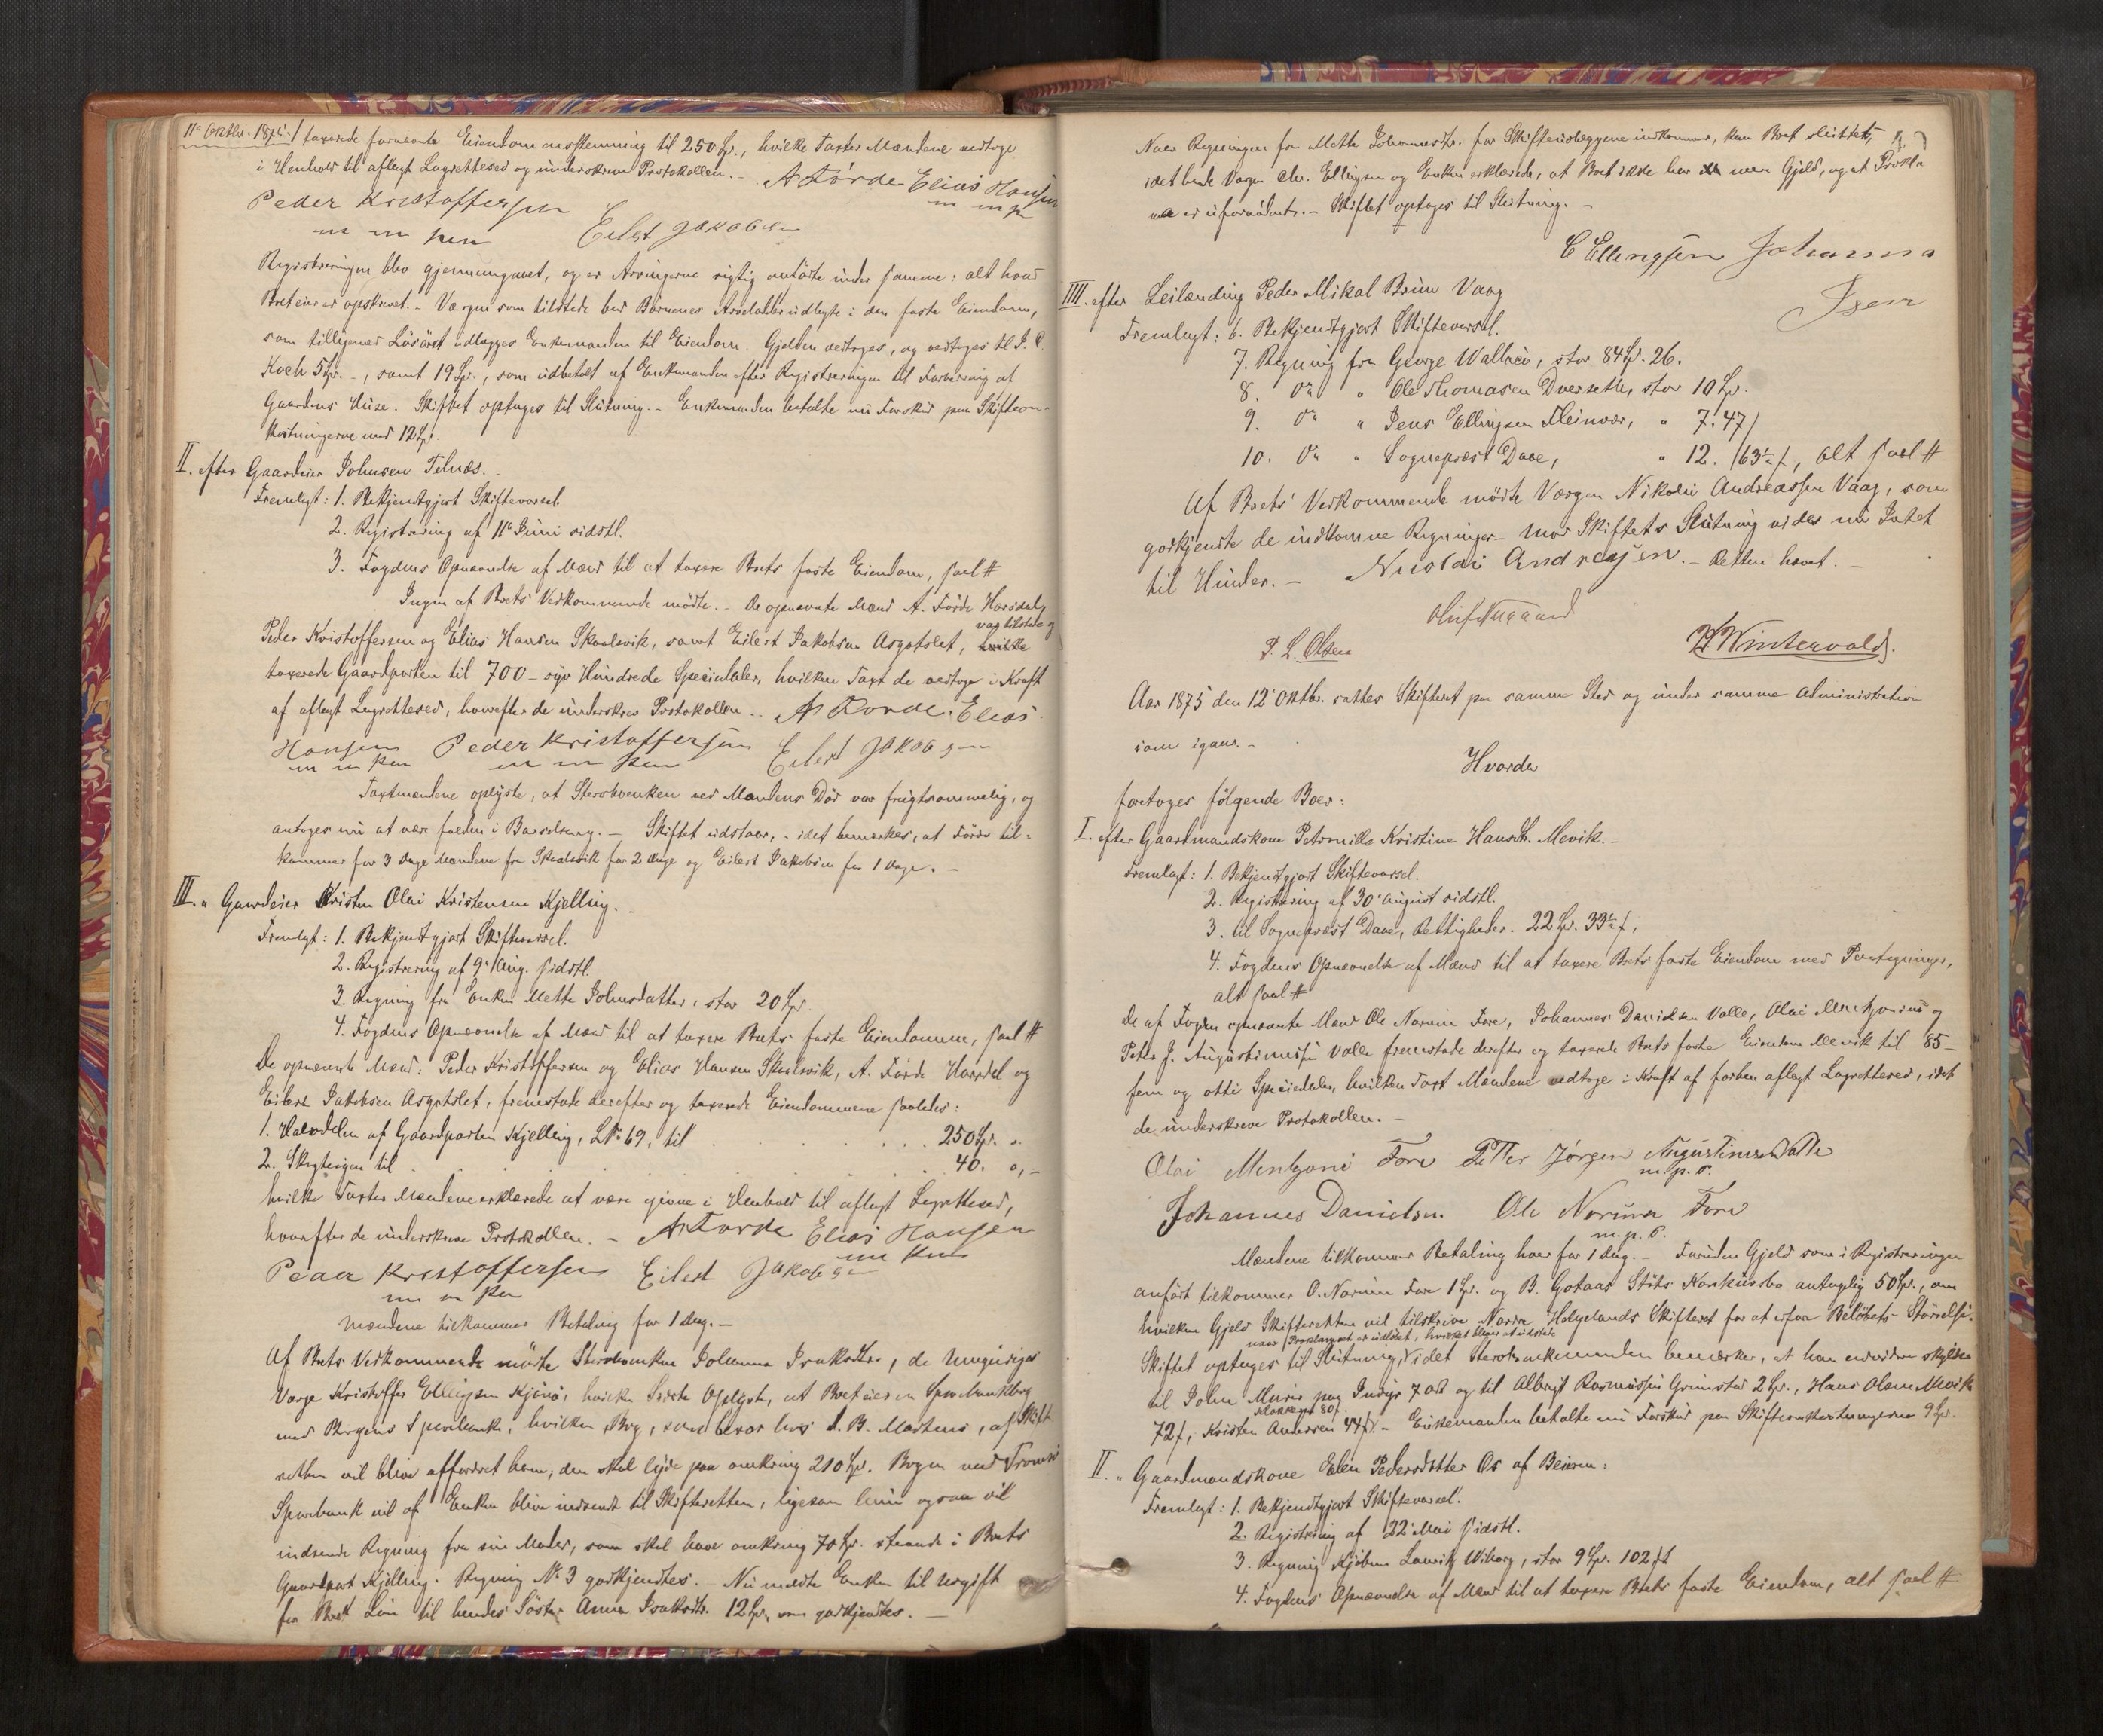 11te Oktbr. 1875./ taxerede fornævnte Eiendom enstemmig til 250 Sp., hvilke Taxter Mændene vedtoge
i Henhold til aflagt Lagrettesed og underskrev Protokollen. – A Förde Elias Hansen
m m p
Peder Kristoffersen
m m pen Eilert Jakobsen
Registreringen blev gjennemgaaet, og er Arvingerne rigtig anførte under samme; alt hvad
Boet eier er opskrevet. – Værgen som tilstede bad Børnenes Arvelodder udlagte i den faste Eiendom,
som tilligemed Løsøret udlægges Enkemanden til Eiendom. Gjelden vedtoges, og vedtoges til J. C.
Koch 5 Sp. –, samt 19 Sp., som udbetalt af Enkemanden efter Registreringen til Forbedring af
Gaardens Huse. Skiftet optages til Slutning. – Enkemanden betalte nu Forskud paa Skifteom-
kostningerne med 12 Sp.
II. efter Gaardeier Johnsen Telnæs. –
Fremlagt: 1. Bekjendtgjort Skiftevarsel.
2. Registrering af 11te Juni sidstl.
3. Fogdens Opnævnelse af Mænd til at taxere Boets faste Eiendom, saal #
Ingen af Boets Vedkommende mødte. – De opnævnte Mænd A. Förde Horsdal,
var tilstede og
Peder Kristoffersen og Elias Hansen Skaalsvik, samt Eilert Jakobsen Asgotslet, hvilke
taxerede Gaardparten til 700 – syv Hundrede Speciedaler, hvilken Taxt de vedtoge i Kraft
af aflagt Lagrettesed, hvorefter de underskrev Protokollen. – A Förde. Elias
Hansen Peder Kristoffersen Eilert Jakobsen
m m pen m m pen
Taxtmændene oplyste, at Sterboenken ved Mandens Död var frugtsommelig, og
antoges nu at være falden i Barselseng. – Skiftet udstaar, – idet bemærkes, at Förde til-
kommer for 3 Dage Mændene fra Skaalsvik for 2 Dage og Eilert Jakobsen for 1 Dage. –
III. " Gaardeier Kristen Olai Kristensen Kjelling. –
Fremlagt: 1. Bekjendtgjort Skiftevarsel.
2. Registrering af 9de Aug. sidstl.
3. Regning fra Enken Mette Johnsdatter, stor 20 Sp.
4. Fogdens Opnævnelse af Mænd til at taxere Boets faste Eiendomme, saal #
De opnævnte Mænd: Peder Kristoffersen og Elias Hansen Skaalsvik, A. Förde Horsdal og
Eilert Jakobsen Asgotslet, fremstode derefter og taxerede Eiendommene saaledes:
1. Halvdelen af Gaardparten Kjelling, LNo 69, til . . . 250 Sp. "
2. Skogteigen til . . . 40. ", –
hvilke Taxter Mændene erklærede at være givne i Henhold til aflagt Lagrettesed,
hvorefter de underskrev Protokollen. – A Förde Elias Hansen
m pen
Peder Kristoffersen Eilert Jakobsen
m m pen
Mændene tilkommer Betaling for 1 Dag. –
Af Boets Vedkommende mødte Sterboenken Johanna Isaksdtr., de Umyndiges
Værge Kristoffer Ellingsen Kjönö, hvilken Sidste Oplyste, at Boet eier en Sparebankbog
med Bergens Sparebank, hvilken Bog, som beror hos S. B. Martens, af Skifte-
retten vil blive affordret ham, den skal lyde paa omkring 210 Sp. Bogen ved Tromsö
Sparebank vil af Enken blive indsendt til Skifteretten, ligesom hun ogsaa vil
indsende Regning fra sin Moder, som skal have omkring 70 Sp. staaende i Boets
Gaardpart Kjelling. Regning No 3 godkjendtes. – Nu meldte Enken til Udgift
fra Boet Lön til hendes Söster Anna Isaksdtr. 12 Sp, som godkjendtes. –
Naar Regningen fra Mette Johannesdtr. for Skifteudlæggene indkommer, kan Boet sluttes,
idet baade Værgen Chr. Ellingsen og Enken erklærede, at Boet ikke har mere Gjeld, og at Prokla
ma er ufornödent. – Skiftet optages til Slutning. –
C Ellingsen Johanna
Isen
IIII. efter Leilænding Peder Mikal Bruun Vaag
Fremlagt: 6. Bekjendtgjort Skiftevarsel.
7. Regning fra George Wallace, stor 84 Sp. 26.
8. Do " Ole Thomasen Dverseth, stor 10 Sp.
9. Do " Jens Ellingsen Fleinvær, " 7. 47/
10. Do " Sognepræst Daae, " 12. 63½ f, alt saal #
Af Boets Vedkommende mødte Værgen Nikolai Andreassen Vaag, som
godkjendte de indkomne Regninger – mod Skiftets Slutning vides nu Intet
til Hinder. – Nicolai Andreasen. – Retten hævet. –
Oluf Nygaard
P. L. Olsen Winterwold.
Aar 1875 den 12te Oktbr. sattes Skifteret paa samme Sted og under samme Administration
som igaar. –
Hvorda
foretoges følgende Boer:
I. efter Gaardmandskone Petronille Kristine Hansdtr. Mevik. –
Fremlagt: 1. Bekjendtgjort Skiftevarsel.
2. Registrering af 30te August sidstl.
3. til Sognepræst Daae, Rettigheder. 22 Sp. 33½ f,
4. Fogdens Opnævnelse af Mænd til at taxere Boets faste Eiendom med Paategninger,
alt saal #
De af Fogden opnævnte Mænd Ole Normin Fore, Johannes Danielsen Valle, Olai Mentzonius og
Peter J. Augustinussen Valle fremstode derefter og taxerede Boets faste Eiendom Mevik til 85 –
fem og otti Speciedaler, hvilken Taxt Mændene vedtoge i Kraft af forhen aflagt Lagrettesed, idet
de underskrev Protokollen. –
Olai Mentzoni Fore Petter Jørgen Augustinsen Valle
m. p. P.
Johannes Danielsen. Ole Normin Fore
m. p. P.
Mændene tilkommer Betaling hver for 1 Dag. – Foruden Gjeld som i Registreringen
anført tilkommer O. Normin Fore 1 Sp. og B. Gotaas Stöts Konkursbo antagelig 50 Sp., om
hvilken Gjeld Skifteretten vil tilskrive Nordre Helgelands Skifteret for at erfare Belöbets Störrelse.
naar Proklamaet er udløbet, hvilket bliver at udstede
Skiftet optages til Slutning, idet Sterboenkemanden bemærker, at han endvidere skylder
til John Muris paa Inndyr 7 Ort og til Albrigt Rasmussen Grimstad 2 Sp., Hans Olsen Mevik
Klokkeren 80 f.
72 f, Kristen Andersen 44 f. – Enkemanden betalte nu Forskud paa Skifteomkostningerne 9 Sp.
II. " Gaardmandskone Elen Pedersdatter Os af Beieren:
Fremlagt: 1. Bekjendtgjort Skiftevarsel.
2. Registrering af 22de Mai sidstl.
3. Regning Kjøbm Lauritz Wiborg, stor 9 Sp. 102 f
4. Fogdens Opnævnelse af Mænd til at taxere Boets faste Eiendom, alt saal #